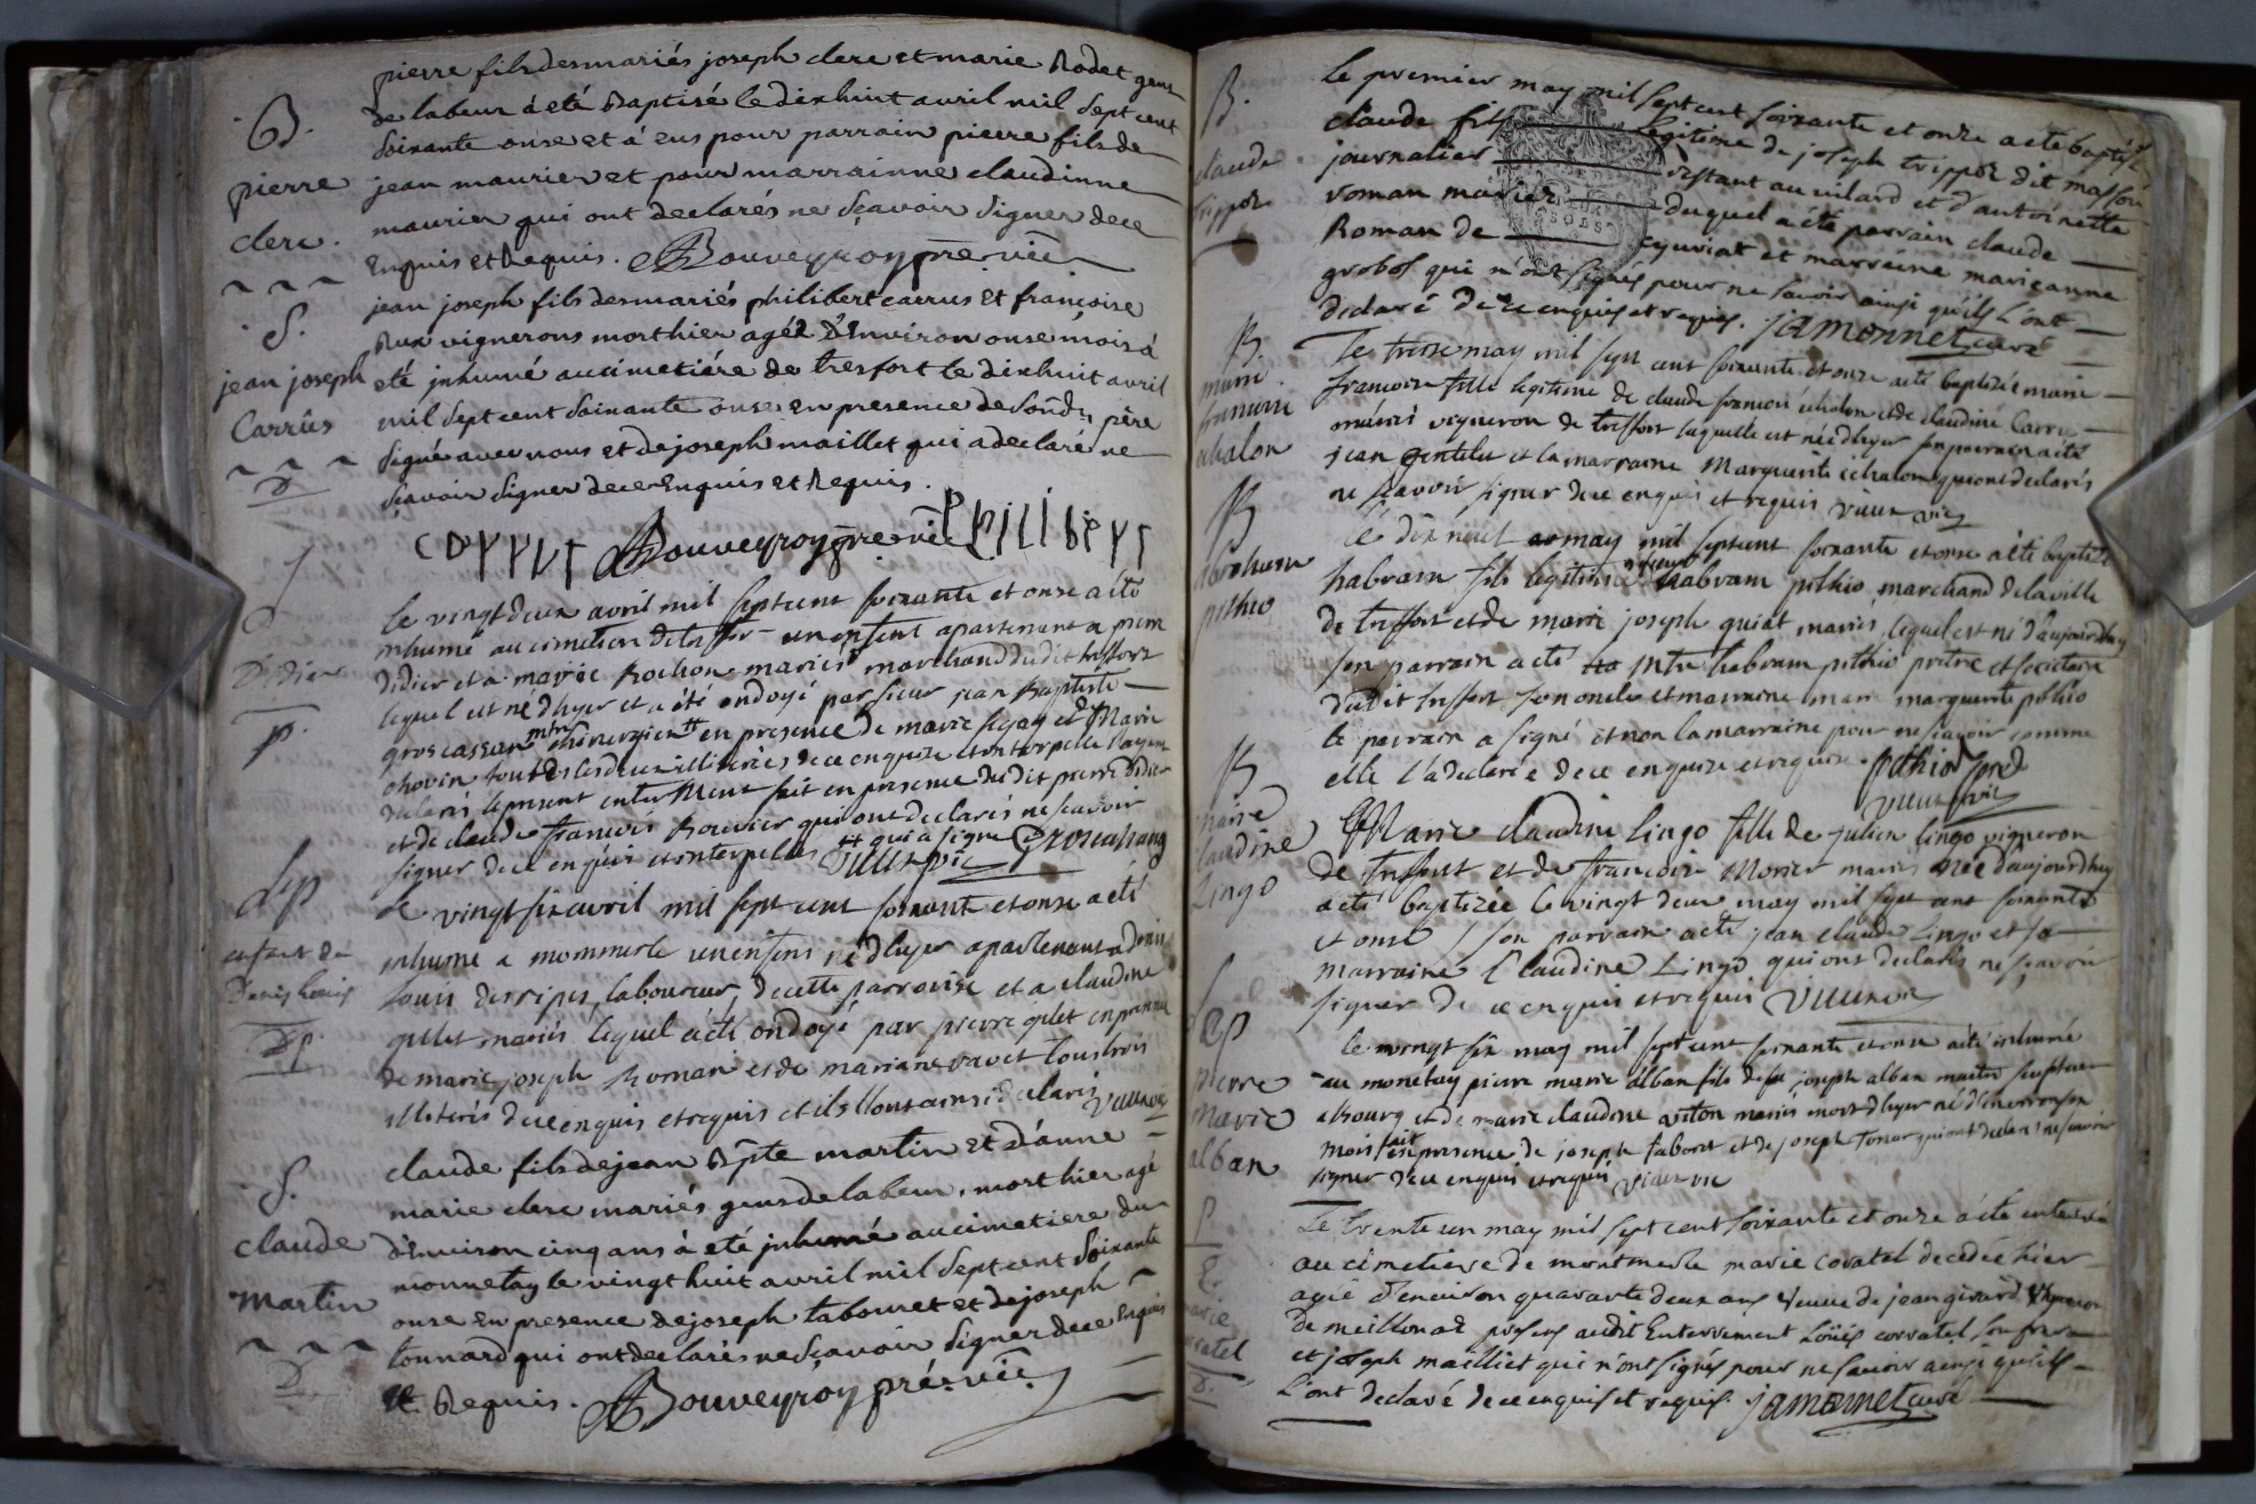 B.
pierre
clerc.
pierre fils des mariés joseph clerc et marie Rodet gens
de labeur á eté Baptisé le dixhuit avril mil sept cent
soixante onse et á eus pour parrain pierre fils de
jean maurier et pour marrainne claudinne
maurier qui ont declarés ne sçavoir signer de ce
Enquis et Requis. Bouveyroy pre. vic.
S.
jean joseph
Carrûs
jean joseph fils des mariés philibert carrus et francoise
Rux vignerons mort hier agée d'Environ onse mois á
eté inhumé au cimetiére de tresfort le dixhuit avril
mil sept cent soixante onse en presence de sondt père
signé avec nous et de joseph maillet qui a declaré ne
sçavoir signer de ce Enquis et Requis.
carrus Bouveyroy pre vic Philibert
Didier
le vingt deux avril mil sept cent soixante et onse a été
inhumé au cimetiere de tresfort un enfent apartenent a pierre
didier et a marie Rochon mariés marchand dudit tresfort
lequel est né d'hyer et a été ondoyé par sieur jean Baptiste
groscassan mtre chirurgien # en presence de marie legay et Marie
chovin toutes les deux illiterées de ce enquise et interpellé l'ayant
declarés le present enterrement fait en presence dudit pierre didier
et de claude francois Bouvier qui ont declarés ne scavoir
signer de ce enquis et interpellés # qui a signé Groscassang
vieux vic
Sep
enfant de
Denis Louis
Le vingt six avril mil sept cent soixante et onse a eté
inhumé a montmerle un enfent né d'hyer apartenant a denis
Louis derripes laboureur de cette parroisse et a claudine
gelet mariés lequel a eté ondoyé par pierre gelet en presence
de marie joseph Roman et de mariane ravet tous trois
illiterés de ce enquis et requis et ils l'ont ainsi declarés vieux vic
S.
claude
Martin
claude fils de jean Bpte martin et d'anne
marie clerc mariés gens de labeur, mort hier agé
d'Environ cinq ans à eté inhumé au cimetiere du
monnetay le vingt huit avril mil sept cent soixante
onse en presence de joseph tabouret et de joseph
tonnard qui ont declarés ne sçavoir signer de ce Enquis
et Requis. Bouveyroy pré. vic.
B.
claude
trippoz
le premier may mil sept cent soixante et onze a ete baptisé
claude fils legitime de joseph trippoz dit masson
journalier restant au vilard et d'antoinette
roman mariez duquel a été parrain claude
Roman de cyuriat et marreine marieanne
grobos qui n'ont signés pour ne savoir ainsi qu'ils l'ont
declaré de ce enquis et requis. jamonnet curé
B.
marie
francoise
echalon
Le treise may mil sept cent soixante et onze a eté baptizée marie
francoise fille legitime de claude francois echalon et de claudine Carrus
mariés vigneron de tresfort laquelle est née d'hyer son parrain a eté
jean gentelet et la marraine Marguerite echalon qui ont declarés
ne sçavoir signer de ce enquis et requis vieux vic
B
abraham
pithio
le dix neuf may mil sept cent soixante et onse a eté baptizé
habram fils legitime de sieur habram pithio marchand de la ville
de tresfort et de marie joseph guiat mariés lequel est né d'aujourdhuy
son parrain a eté mtre habram pithio pretre et societaire
dudit tresfort son oncle et marraine marie marguerite pithio
le parrain a signé et non la marraine pour ne sçavoir comme
elle l'a declarée de ce enquise et requise. pithio pred
vieux vic
B
marie
claudine
Lingo
Marie claudine Lingo fille de julien lingo vigneron
de tresfort et de francoise Morier mariés née d'aujourdhuy
a eté baptizée le vingt deux may mil sept cent soixante
et onse son parrain a eté jean claude Lingo et sa
marraine Claudine Lingo qui ont declarés ne sçavoir
signer de ce enquis et requis vieux vic
Sep
pierre
Marie
alban
le vingt six may mil sept cent soixante et onse a eté inhumé
au monetay pierre marie alban fils de feu joseph alban maitre sculpteur
a bourg et de marie claudine viton mariés mort d'hyer né d'environ six
mois fait en presence de joseph taboret et de joseph Tonar qui ont declarés ne sçavoir
signer de ce enquis et requis vieux vic
S
marie
coratel
Le trente un may mil sept cent soixante et onze a été enterrée
au cimetiere de montmerle marie coratel decedée hier
agée d'environ quarante deux ans veuve de jean girard vigneron
de meillonas presens audit Enterrement Loüis corratel son frere
et joseph mailliet qui n'ont signés pour ne savoir ainsi qu'ils
l'ont declaré de ce enquis et requis. jamonnet curé